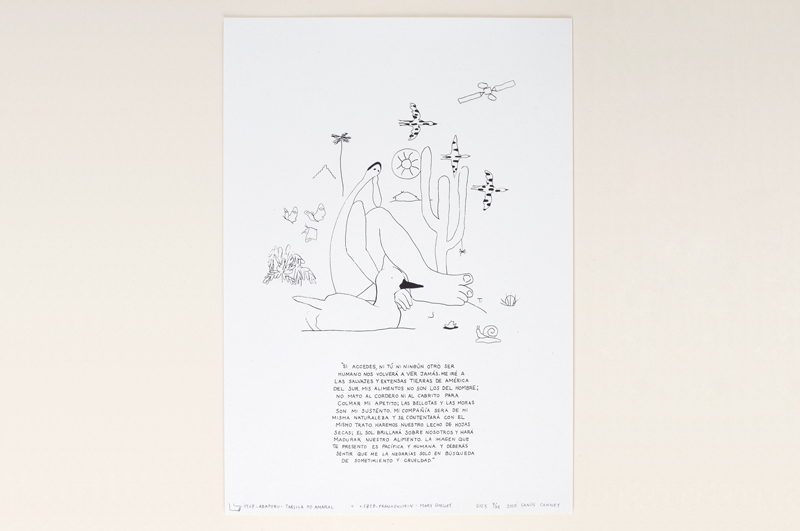 "SI ACCEDES, NI TÚ NI NINGÚN OTRO SER
HUMANO NOS VOLVERÁ A VER JAMÁS. ME IRÉ A
LAS SALVAJES Y EXTENSAS TIERRAS DE AMÉRICA
DEL SUR. MIS ALIMENTOS NO SON LOS DEL HOMBRE;
NO MATO AL CORDERO NI AL CABRITO PARA
COLMAR MI APETITO; LAS BELLOTAS Y LAS MORAS
SON MI SUSTENTO. MI COMPAÑÍA SERÁ DE MI
MISMA NATURALEZA Y SE CONTENTARÁ CON EL
MISMO TRATO. HAREMOS NUESTRO LECHO DE HOJAS
SECAS; EL SOL BRILLARÁ SOBRE NOSOTROS Y HARÁ
MADURAR NUESTRO ALIMENTO. LA IMAGEN QUE
TE PRESENTO ES PACÍFICA Y HUMANA Y DEBERÁS
SENTIR QUE ME LA NEGARÍAS SOLO EN BÚSQUEDA
DE SOMETIMIENTO Y CRUELDAD."
1928 - ABAPORU - TARSILA DO AMARAL + 1818 - FRANKENSTEIN - MARY SHELLEY